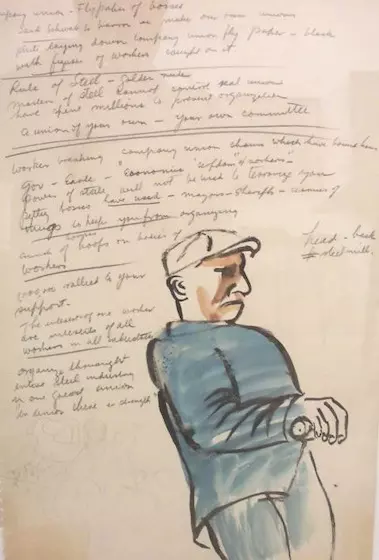 company union - Flypaper of bosses
make our own unions
laying down company union fly paper - black
with figures of workers caught on it
Rule of Steel - Golden rule
Masters of steel cannot control real unions
have spent millions to prevent organization
a union of your own - your own committee
worker breaking company union chains which have bound him
Gov - Earle - Economic "serfdom of workers" -
Power of state will not be used to terrorize you
Petty bosses have used - mayors - sheriffs -
to keep you from organizing
of hoofs on bodies of
workers
rallied to your
support.
The interests of one worker
are interests of all
workers in all industries
organize throughout
entire steel industry
in one great union
In union there is strength
head - back
steel mill.